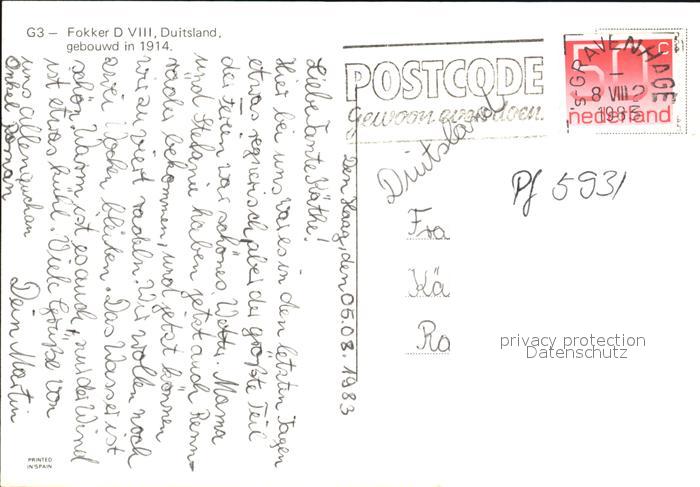 G3 – Fokker D VIII, Duitsland,
gebouwd in 1914.
Den Haag, den 05.08.1983
Liebe Tante Käthe!
Hier bei uns war es in den letzten Tagen
etwas regnerisch, aber der größte Teil
der Ferien war schönes Wetter. Mama
und Stefanie haben jetzt auch Renn-
räder bekommen, und jetzt können
wir zu viert radeln. Wir wollen noch
zwei Wochen bleiben. Das Wasser ist
schön. Warm ist es auch, nur der Wind
ist etwas kühl. Viele Grüße von
uns allen
Onkel Roman
Dein Martin
PRINTED
IN SPAIN
POSTCODE
Gewoon even doen.
's-GRAVENHAGE
8 VIII
1983
c
nederland
Duitsland
Pf 5931
Fra
Kä
Ra
privacy protection
Datenschutz